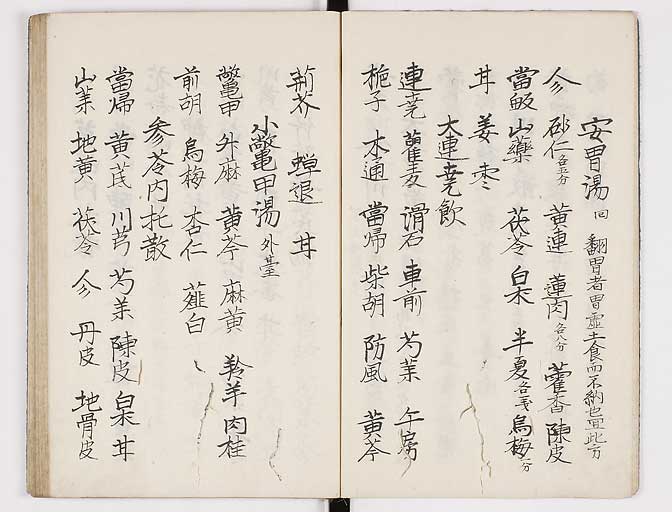 安胃湯 回 翻胃者胃虚土食而不納也宜此方
㕘 砂仁各五分 黄連 蓮肉各八分 藿香 陳皮
當皈 山藥 茯苓 白朮 半夏各戋 烏梅一分
丼 姜 枣
大連尭飲
連尭 瞿麦 滑石 車前 芍薬 午房
梔子 木通 當帰 柴胡 防風 黄芩
荊芥 蝉退 丼
小鼈甲湯 外臺
鼈甲 升麻 黄芩 麻黄 羚羊 肉桂
前胡 烏梅 杏仁 薤白
参苓内托散
當帰 黄芪 川芎 芍薬 陳皮 白朮 丼
山薬 地黄 茯苓 㕘 丹皮 地骨皮